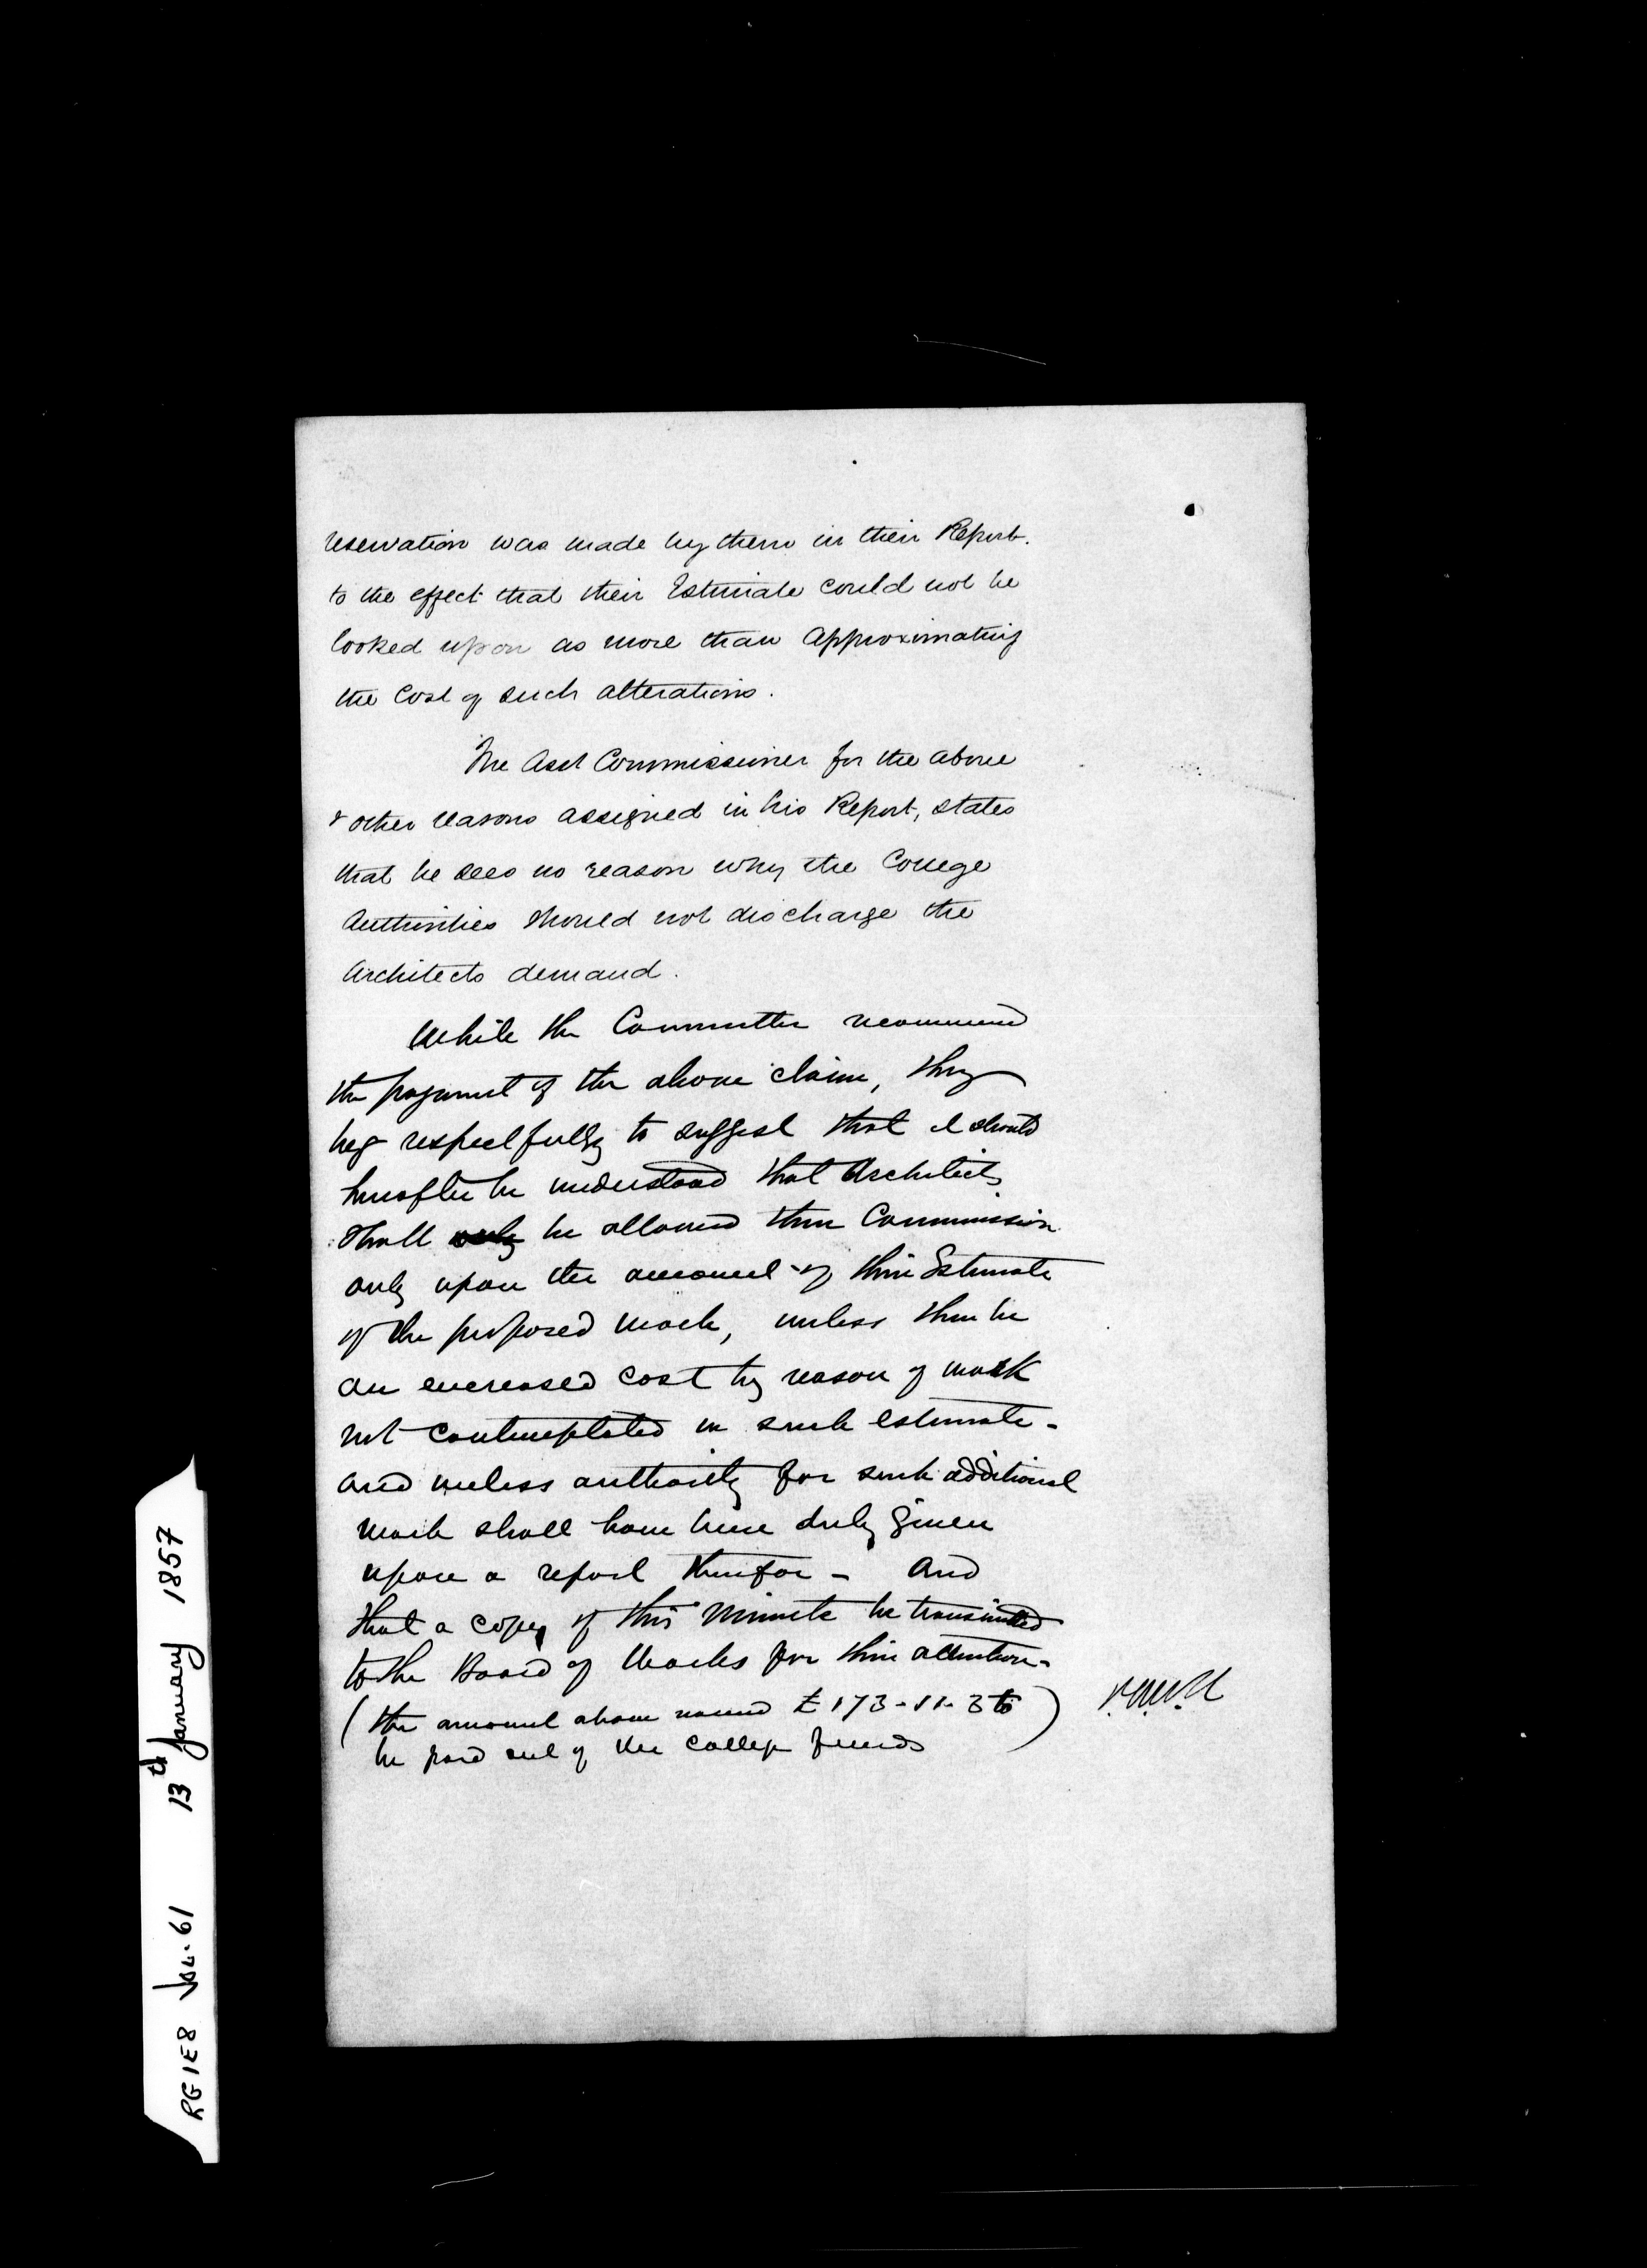 reservation was made by them in their Report.
to the effect that their Estimate could not be
looked upon as more than approximating
the Cost of such alterations.
The Asst Commissioner for the above
& other reasons assigned in his Report, states
that he sees no reason why the College
Authorities should not discharge the
Architects demand.
While the Committee recommend
the payment of the above claim, they
beg respectfully to suggest that it should
hereafter be understood that Architects
shall only be allowed their Commission
only upon the amount of their Estimate
of the proposed work, unless there be
an encreased cost by reason of work
not contemplated in such estimate -
and unless authority for such additional
work shall have been duly given
upon a report therefor - and
that a copy of this Minute be transmitted
to the Board of Works for their attention -
(the amount above named £173-11-3 to)
be paid out of the College funds
RG1E8 Vol. 61 13th January 1857